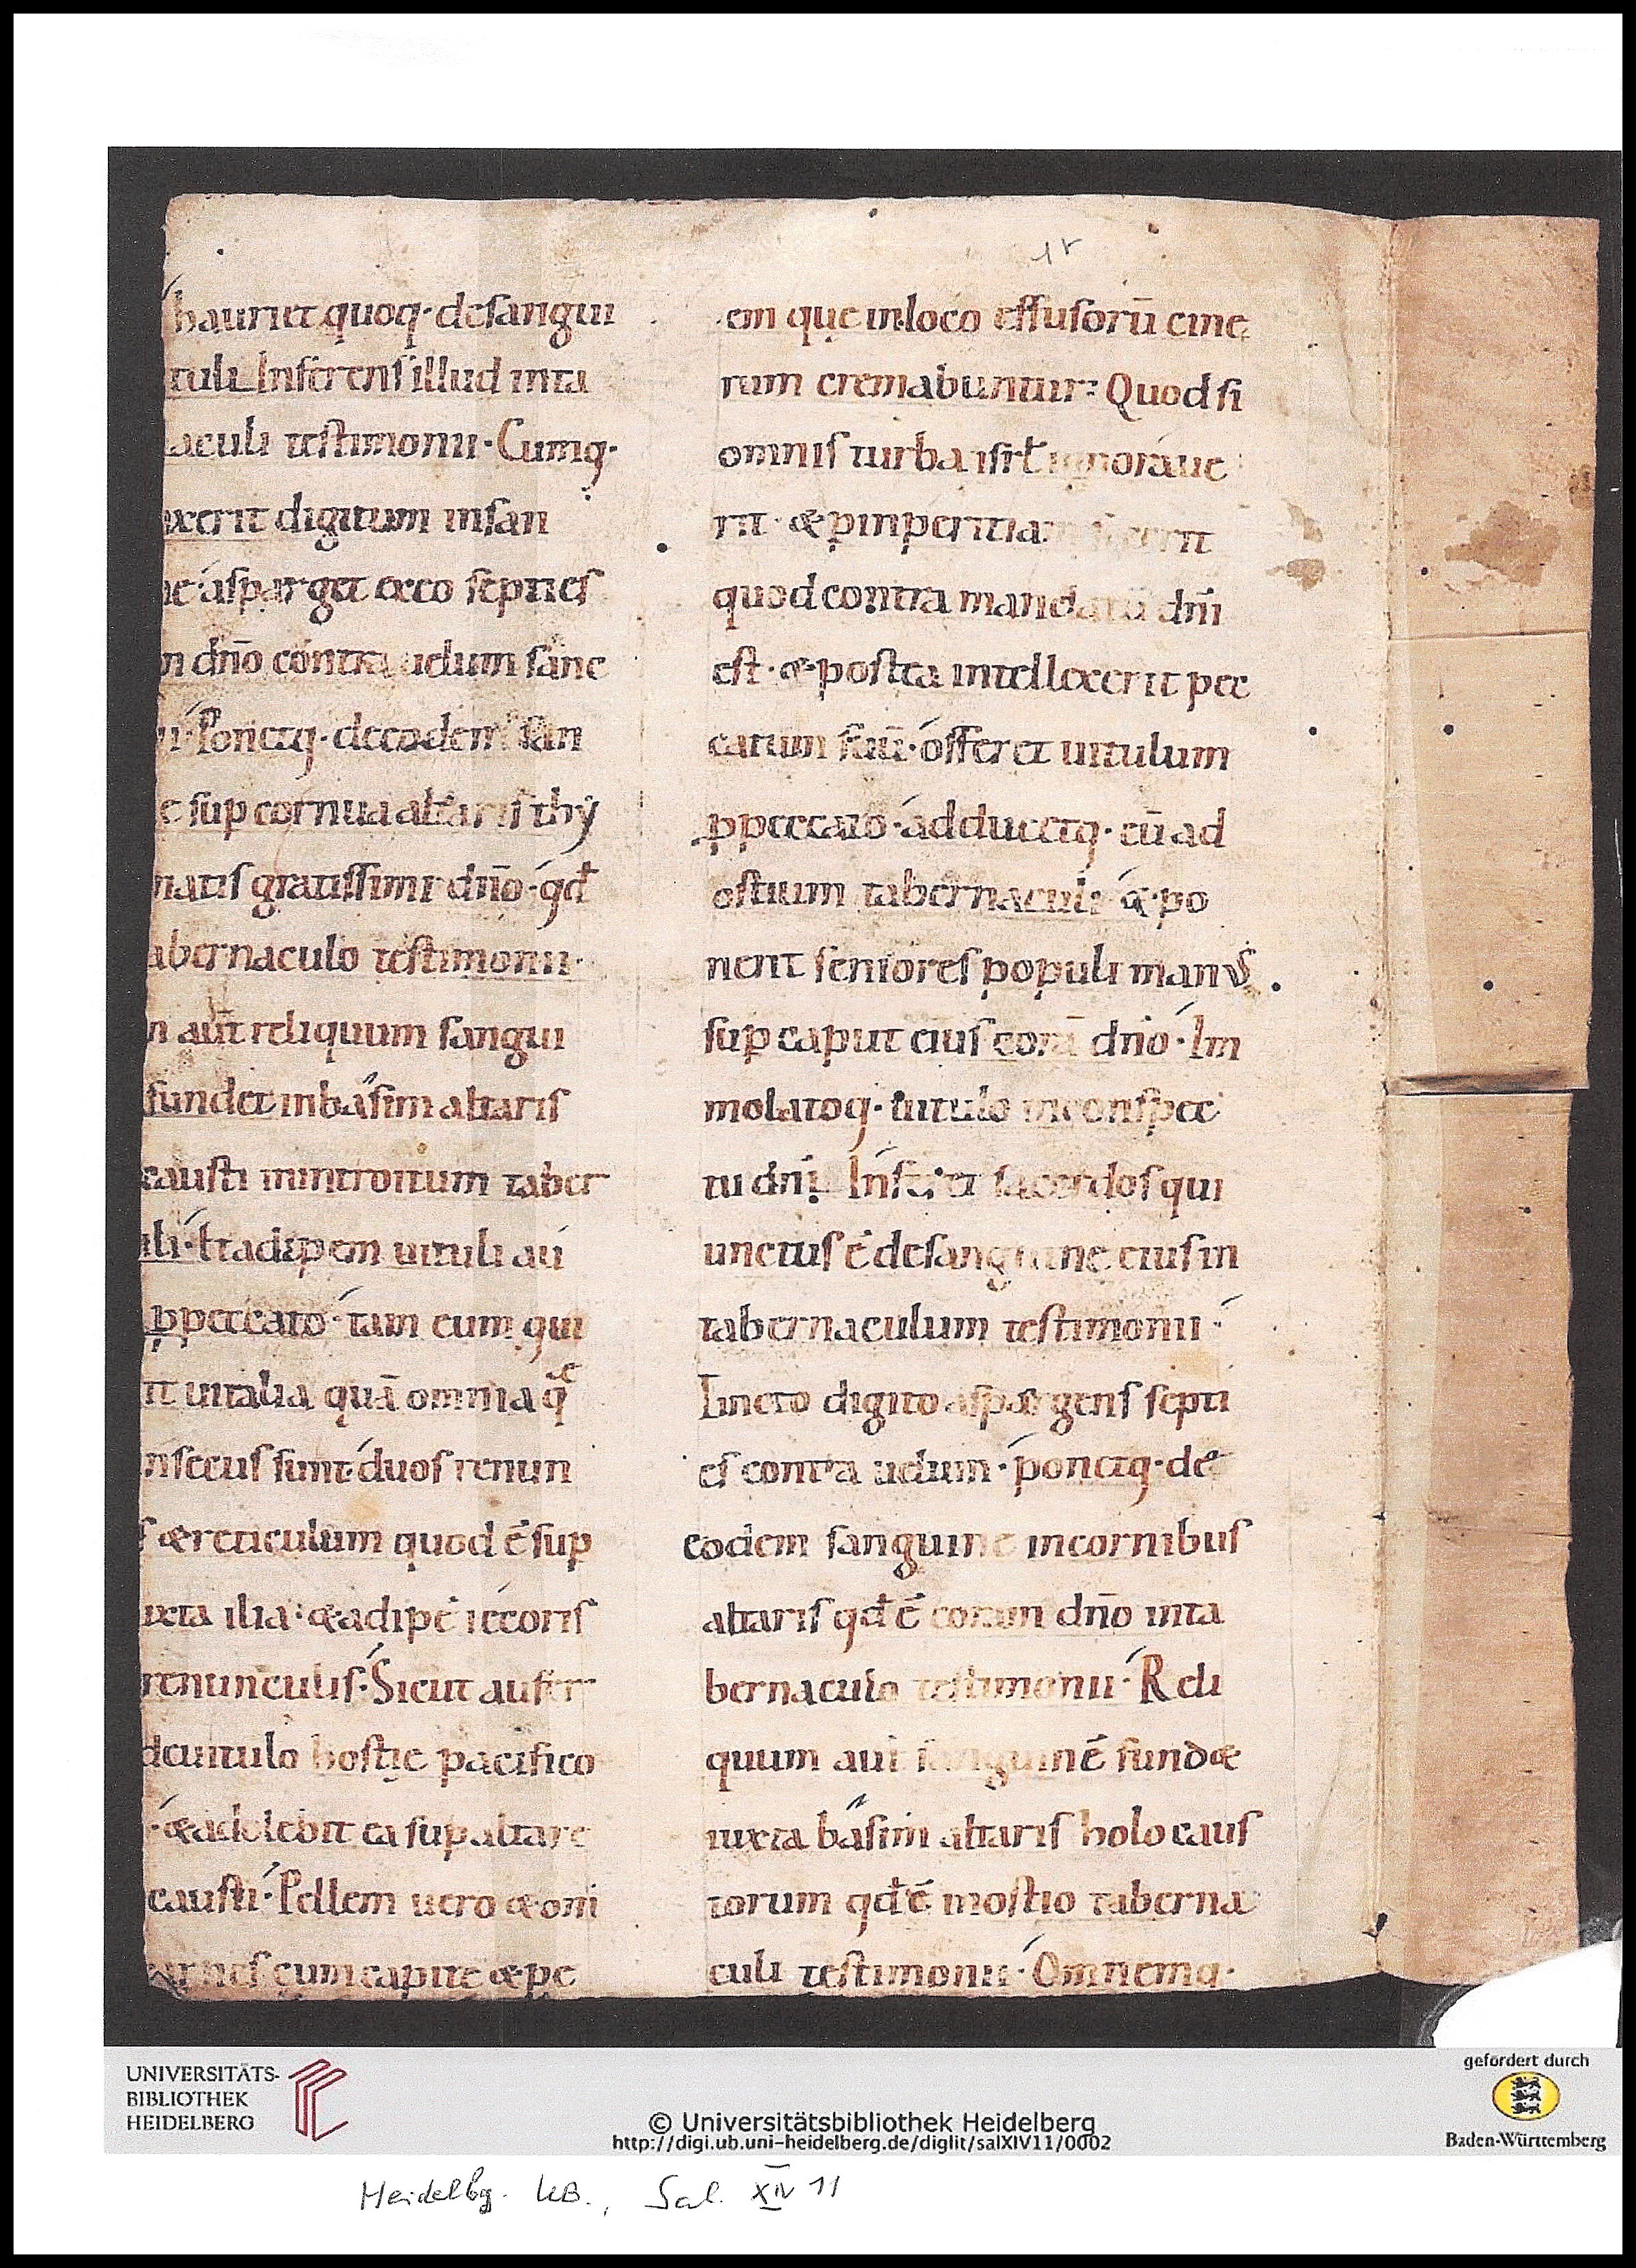 1r
hauriet quoq· desangui
tuli Inferens illud inta
aculi testimonii· Cumq·
xerit digitum insan
ne· asparget exeo septies
m dn̄o contra uelum sanc
ii· Ponetq· deeodem san
e sup cornua altaris thẏ
matis gratissimi dn̄o· qd̄
abernaculo testimonii·
m aūt reliquum sangui
fundet inbasim altaris
causti inintroitum taber
uli· &adipem uituli au
ppeccato· tam eum qui
it uitalia quā omnia q̄
nsecus sunt· duos renun
s &reticulum quod ē sup
uxta ilia: &adipē iecoris
renunculis· Sicut aufer
deuitulo hostię pacifico
· &adolebit ea sup altare
causti· Pellem uero &om̄
arnes cum capite &pe
em que inloco effusorū cine
rum cremabuntur: Quod si
omnis turba isrl̄ ignoraue
rit· &pinperitiam fecerit
quod contra mandatū dn̄i
est· &postea intellexerit pec
catum suū· offeret uitulum
ppeccato· adducetq· eū ad
ostium tabernaculi· &po
nent seniores populi manus
sup caput eius corā dn̄o· Im
molatoq· uitulo inconspec
tu dn̄i· Inferet sacerdos qui
unctus ē desanguine eius in
tabernaculum testimonii·
Tincto digito aspargens septi
es contra uelum· ponetq· de
eodem sanguine incornibus
altaris qd̄ ē coram dn̄o inta
bernaculo testimonii· Reli
quum aut̄ sanguinē fund&
iuxta basim altaris holocaus
torum qd̄ ē inostio taberna
culi testimonii· Omnemq·
UNIVERSITÄTS-
BIBLIOTHEK
HEIDELBERG
© Universitätsbibliothek Heidelberg
http://digi.ub.uni-heidelberg.de/diglit/salXIV11/0002
gefördert durch
Baden-Württemberg
Heidelbg. UB., Sal. XIV 11